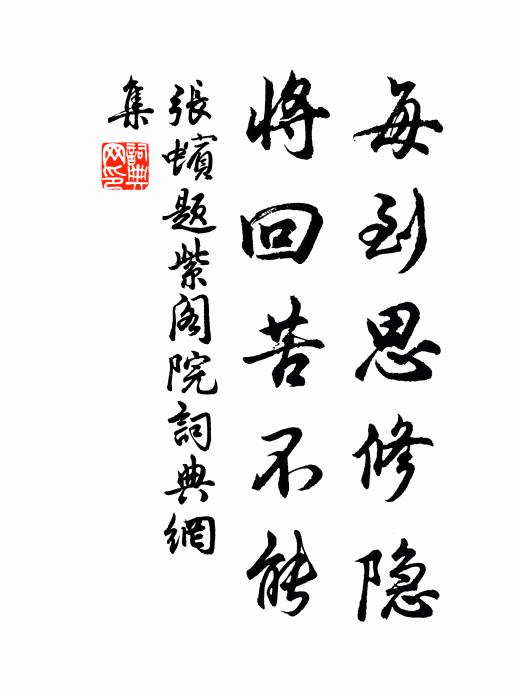 每到思修隐
将回苦不能
張蠙題紫阁院詞典網
集
詞典
网印